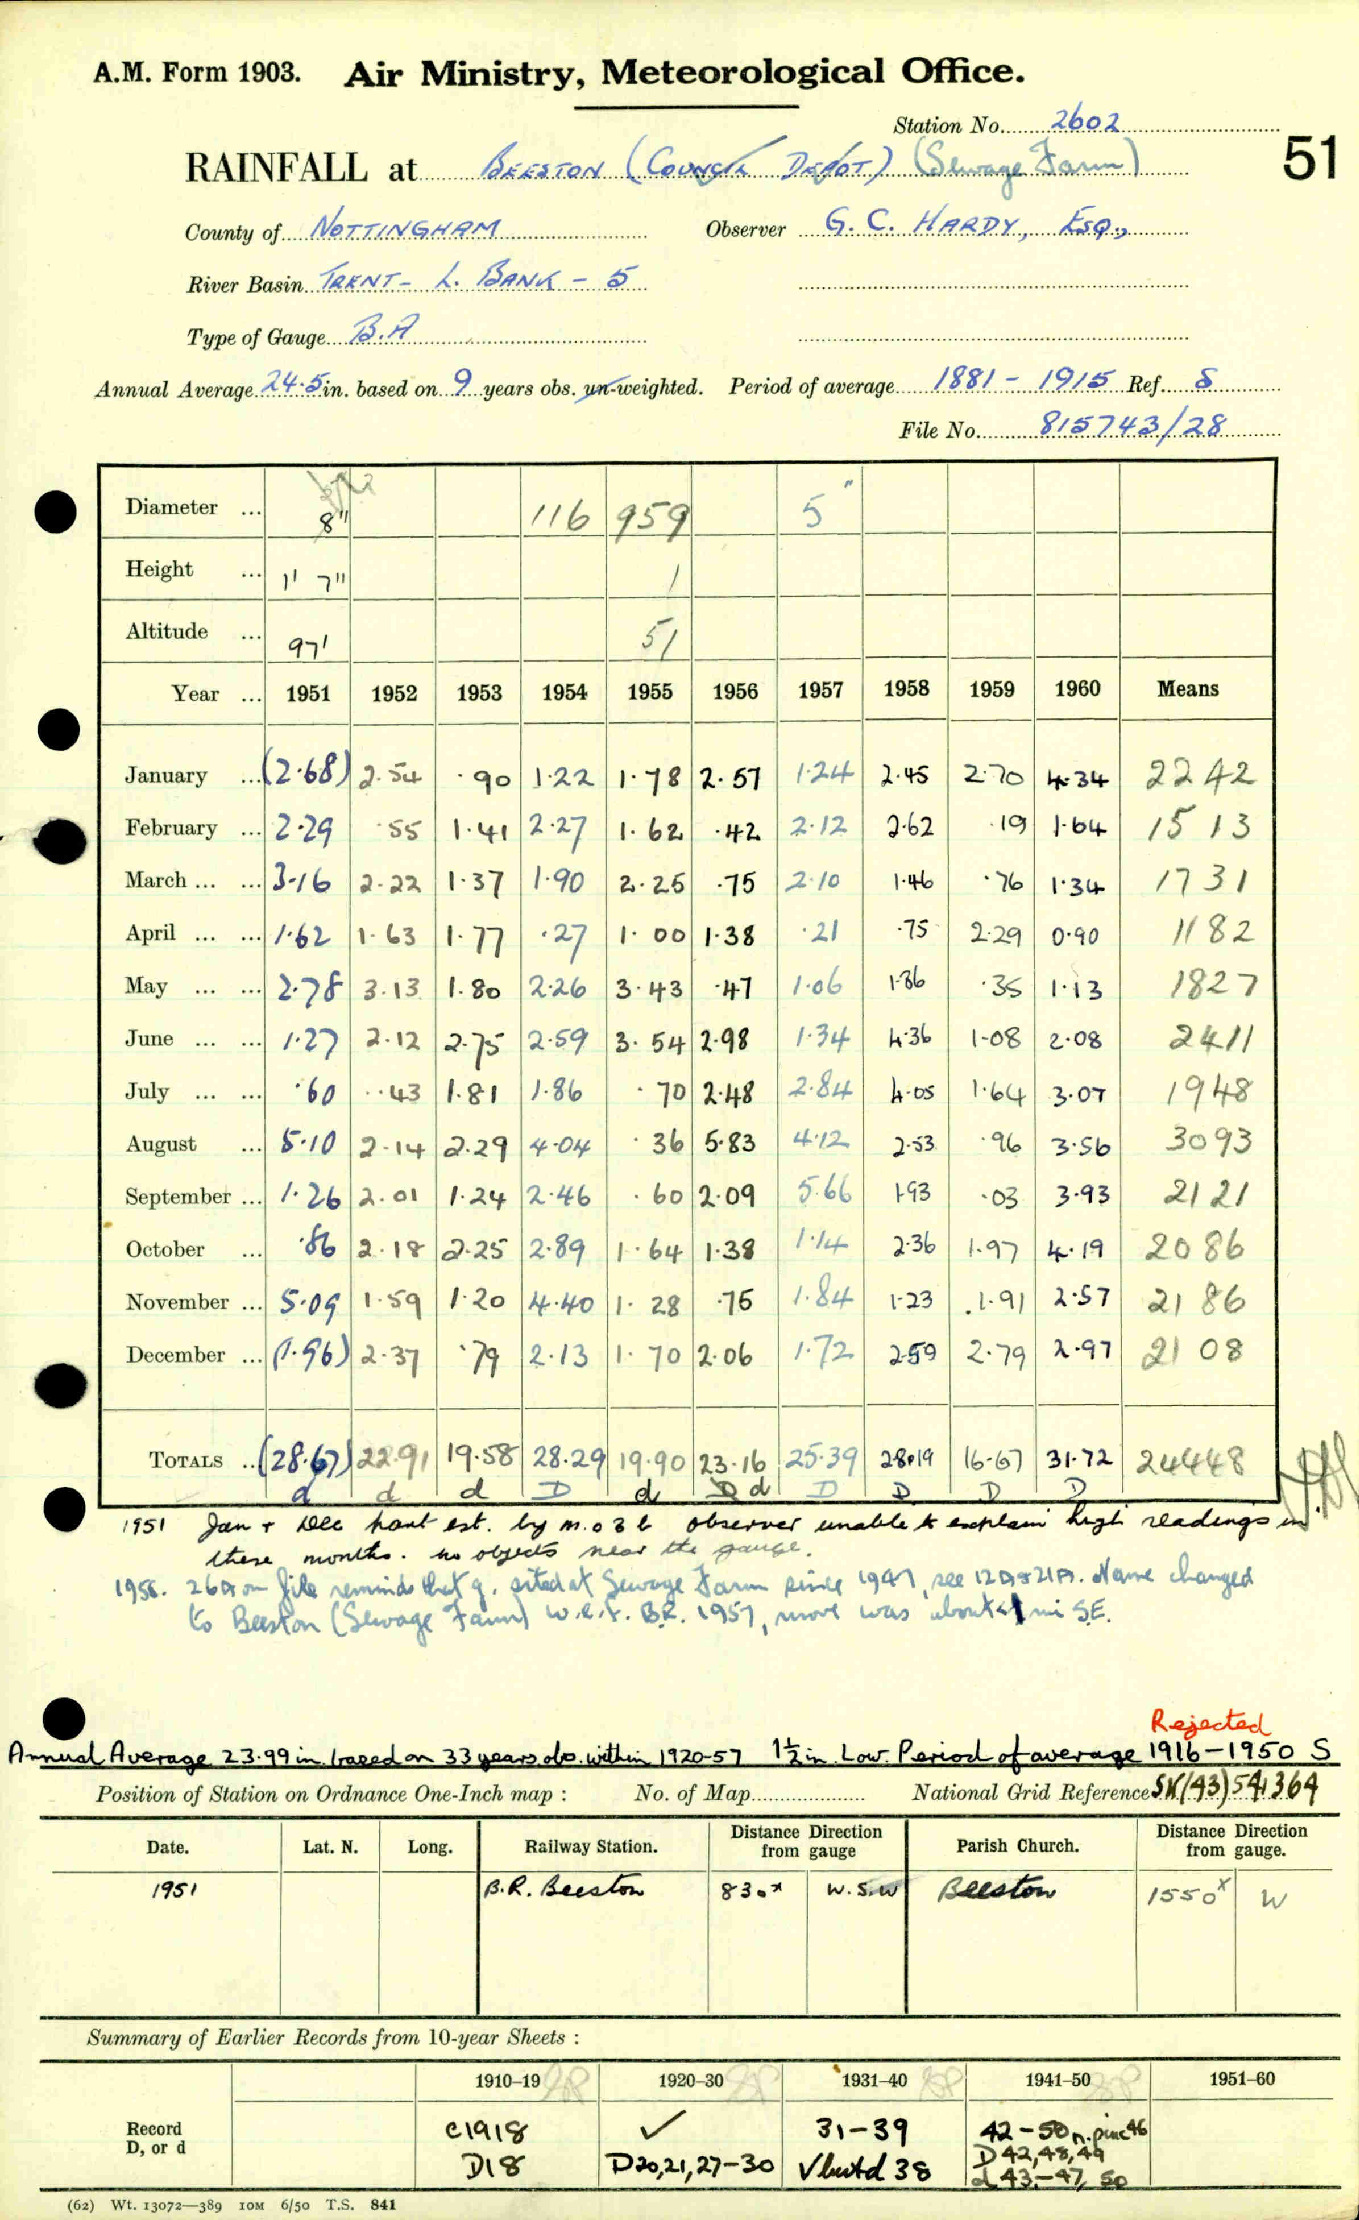 A.M. Form 1903. Air Ministry, Meteorological Office.
Station No. 2602
RAINFALL at BEESTON (COUNCIL DEPOT) (Sewage Farm) 51
County of NOTTINGHAM Observer G. C. HARDY, ESQ.,
River Basin TRENT - L. BANK - 5
Type of Gauge B.A
Annual Average 24.5 in. based on 9 years obs. un-weighted. Period of average 1881 - 1915 Ref. S
File No. 815743/28
Diameter ... 8" 116 959 5"
Height ... 1' 7" 1
Altitude ... 97' 51
Year ... 1951 1952 1953 1954 1955 1956 1957 1958 1959 1960 Means
January ... (2.68) 2.54 .90 1.22 1.78 2.57 1.24 2.45 2.70 4.34 2242
February ... 2.29 .55 1.41 2.27 1.62 .42 2.12 2.62 .19 1.64 1513
March ... ... 3.16 2.22 1.37 1.90 2.25 .75 2.10 1.46 .76 1.34 1731
April ... ... 1.62 1.63 1.77 .27 1.00 1.38 .21 .75 2.29 0.90 1182
May ... ... 2.78 3.13 1.80 2.26 3.43 .47 1.06 1.86 .35 1.13 1827
June ... ... 1.27 2.12 2.75 2.59 3.54 2.98 1.34 4.36 1.08 2.08 2411
July ... ... .60 .43 1.81 1.86 .70 2.48 2.84 4.05 1.64 3.07 1948
August ... 5.10 2.14 2.29 4.04 .36 5.83 4.12 2.53 .96 3.56 3093
September ... 1.26 2.01 1.24 2.46 .60 2.09 5.66 1.93 .03 3.93 2121
October ... .86 2.18 2.25 2.89 1.64 1.38 1.14 2.36 1.97 4.19 2086
November ... 5.09 1.59 1.20 4.40 1.28 .75 1.84 1.23 1.91 2.57 2186
December ... (1.96) 2.37 .79 2.13 1.70 2.06 1.72 2.59 2.79 2.97 2108
TOTALS .. (28.67) 22.91 19.58 28.29 19.90 23.16 25.39 28.19 16.67 31.72 24448
d d d D d D d D D D D
1951 Jan + Dec part est. by m.o 3 b observer unable to explain high readings in
these months. no objects near the gauge.
1956. 26A on file reminds that g. sited at Sewage Farm since 1947, see 12A & 21A. Name changed
to Beeston (Sewage Farm) w.e.f. B.R. 1957, move was about 1 mi S.E.
Rejected
Annual Average 23.99 in. based on 33 years obs. within 1920-57 1½ in Low. Period of average 1916-1950 S
Position of Station on Ordnance One-Inch map : No. of Map National Grid Reference SK(43)541364
Date. Lat. N. Long. Railway Station. Distance Direction from gauge Parish Church. Distance Direction from gauge.
1951 B.R. Beeston 830x W.S.W Beeston 1550x W
Summary of Earlier Records from 10-year Sheets :
1910-19 1920-30 1931-40 1941-50 1951-60
Record C1918 ✓ 31-39 42-50 n. pinc 46
D, or d D18 D20,21,27-30 V but d 38 D42,48,49
d 43-47, 50
(62) Wt. 13072—389 10M 6/50 T.S. 841